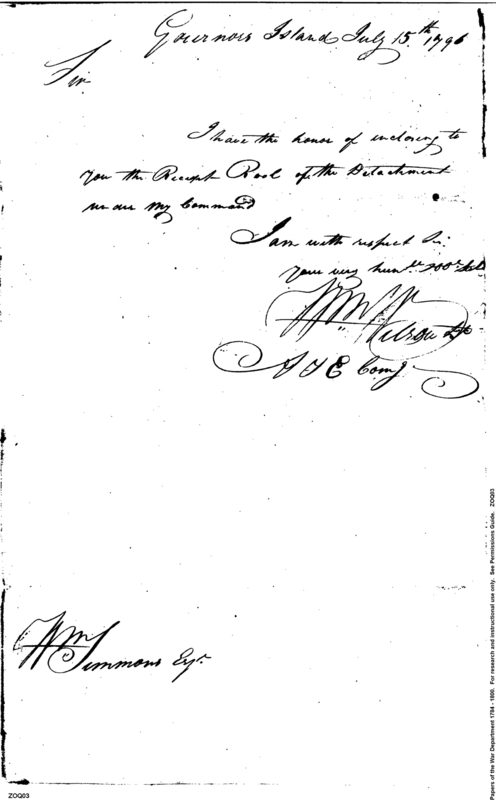 Governors Island July 15th 1796
Sir
I have the honor of inclosing to
you the Receipt Rool of the Detachment
under My Command
I am with respect Sir
your very humle
Wm Wilson Lt
A & E Comg
Wm Simmons Esqr
Papers of the War Department 1784 - 1800. For research and instructional use only. See Permissions Guide. ZOQ03
ZOQ03